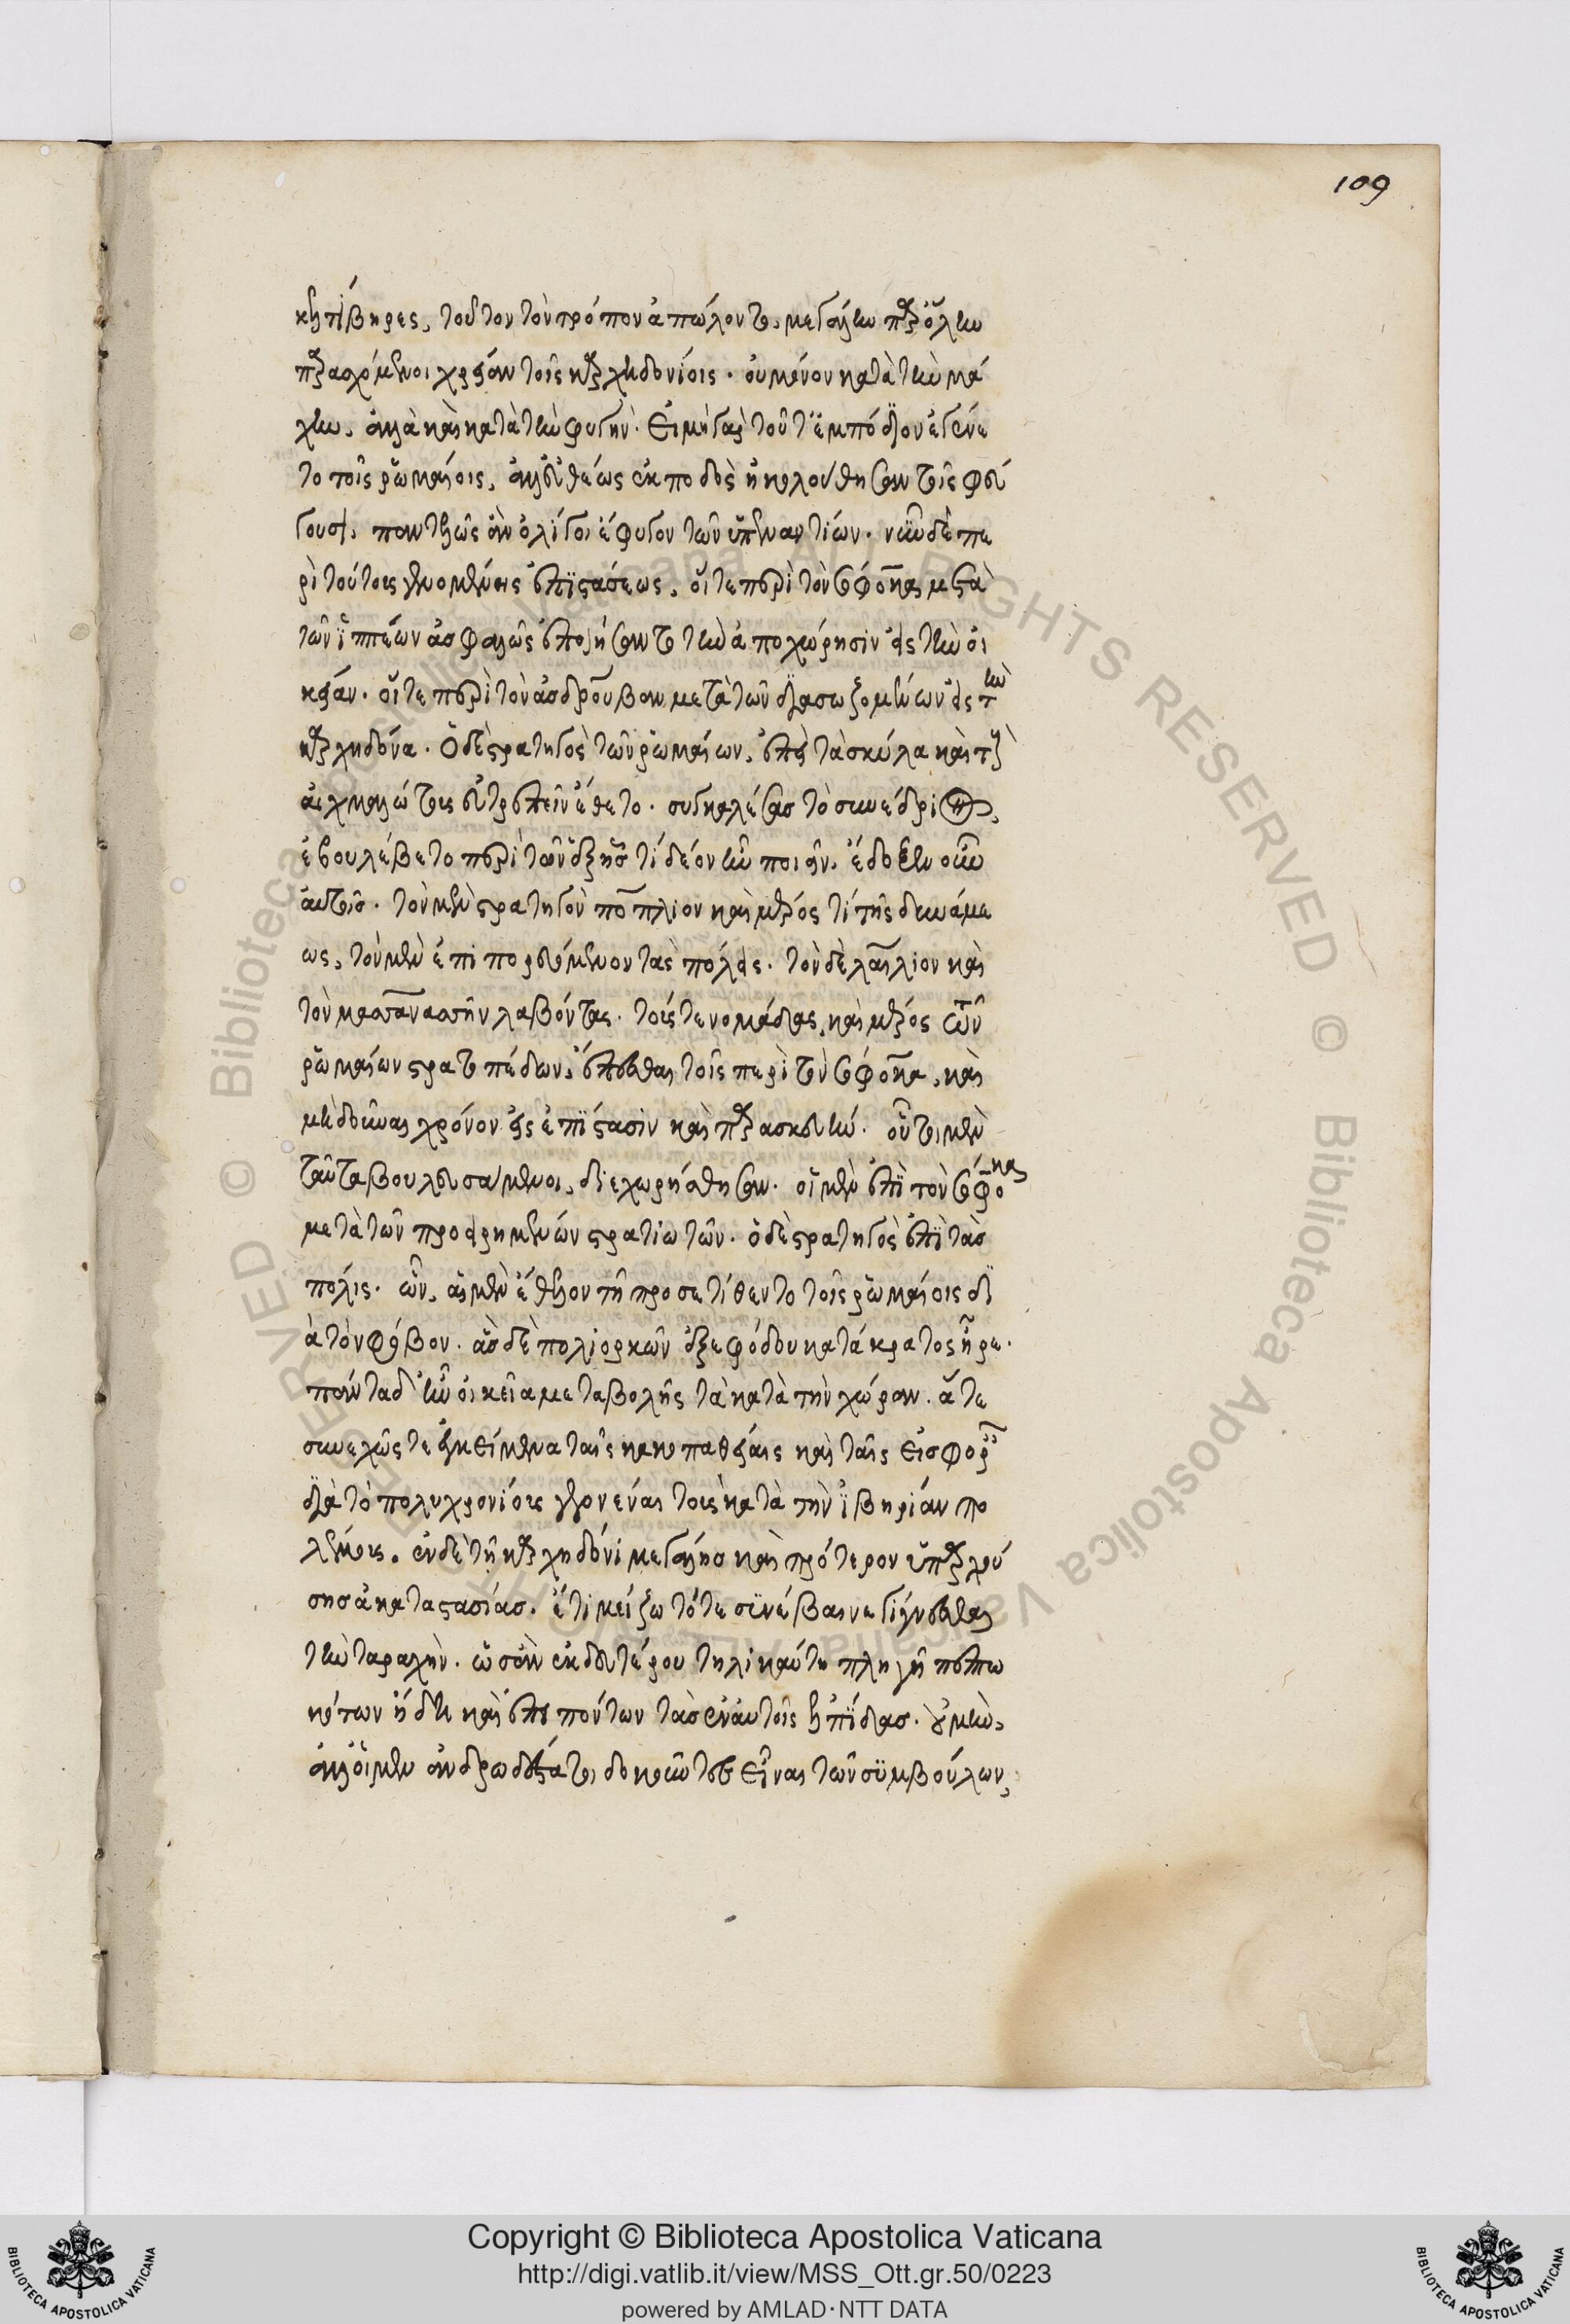 109
κελτίβηρες, τοῦτον τὸν τρόπον ἀπώλοντο, μεγάλην παρόλην
παρασχόμενοι χρείαν τοῖς καρχηδονίοις. οὐ μόνον κατὰ τὴν μά
χην, ἀλλὰ καὶ κατὰ τὴν φυγήν. εἰ μὴ γὰρ τοῦτ' ἐμπόδιον ἐγένε
το τοῖς ῥωμαίοις, ἀλλ' εὐθέως ἐκ ποδὸς ἠκολούθησαν τοῖς φεύ
γουσι, παντελῶς ἂν ὀλίγοι ἔφυγον τῶν ὑπεναντίων. νῦν δὲ πε
ρὶ τούτους γενομένης ἐπιστάσεως, οἵ τε περὶ τὸν σόφακα μετὰ
τῶν ἱππέων ἀσφαλῶς ἐποιήσαντο τὴν ἀποχώρησιν εἰς τὴν οἰ
κείαν. οἵ τε περὶ τὸν ἀσδρούβαν μετὰ τῶν διασωζομένων εἰς τὴν
καρχηδόνα. ὁ δὲ στρατηγὸς τῶν ῥωμαίων, ἐπεὶ τὰ σκύλα καὶ τοὺς
αἰχμαλώτους εὐτρεπεῖν ἔθετο. συγκαλέσας τὸ συνέδριον,
ἐβουλεύετο περὶ τῶν ἑξῆς τί δέον ἦν ποιεῖν. ἔδοξεν οὖν
αὐτοῖς. τὸν μὲν στρατηγὸν πόπλιον καὶ μέρος τι τῆς δυνάμε
ως, τὸν μὲν ἐπιπορευόμενον τὰς πόλεις. τὸν δὲ λαίλιον καὶ
τὸν μασσανάσσην λαβόντας. τούς τε νομάδας, καὶ μέρος τῶν
ῥωμαίων στρατοπέδων, ἕπεσθαι τοῖς περὶ τὸν σόφακα, καὶ
μὴ δοῦναι χρόνον εἰς ἐπίστασιν καὶ παρασκευήν. οὗτοι μὲν
ταῦτα βουλευσάμενοι, διεχωρίσθησαν. οἱ μὲν ἐπὶ τὸν σόφακα
μετὰ τῶν προειρημένων στρατιωτῶν. ὁ δὲ στρατηγὸς ἐπὶ τὰς
πόλις. ὧν, αἱ μὲν ἐθελοντὴ προσετίθεντο τοῖς ῥωμαίοις δι
ὰ τὸν φόβον. ἃς δὲ πολιορκῶν ἐξ ἐφόδου κατὰ κράτος ᾕρει.
πάντα δ' ἦν οἰκεῖα μεταβολῆς τὰ κατὰ τὴν χώραν. ἅτε
συνεχῶς τε ἐγκείμενα ταῖς κακοπαθείαις καὶ ταῖς εἰσφοραῖς
διὰ τὸ πολυχρονίους γεγονέναι τοὺς κατὰ τὴν ἰβηρίαν πο
λέμους. ἐν δὲ τῇ καρχηδόνι μεγάλης καὶ πρότερον ὑπαρχού
σης ἀκαταστασίας. ἔτι μείζω τότε συνέβαινε γίγνεσθαι
τὴν ταραχήν. ὡς ἂν ἐκ δευτέρου τηλικαύτῃ πληγῇ πεπτω
κότων ἤδη καὶ ἀπειπόντων τὰς ἐν αὐτοῖς ἐλπίδας. οὐ μὴν,
ἀλλ' οἱ μὲν ἀνδρωδέστατοι δοκοῦντες εἶναι τῶν συμβούλων,
Copyright © Biblioteca Apostolica Vaticana
http://digi.vatlib.it/view/MSS_Ott.gr.50/0223
powered by AMLAD·NTT DATA